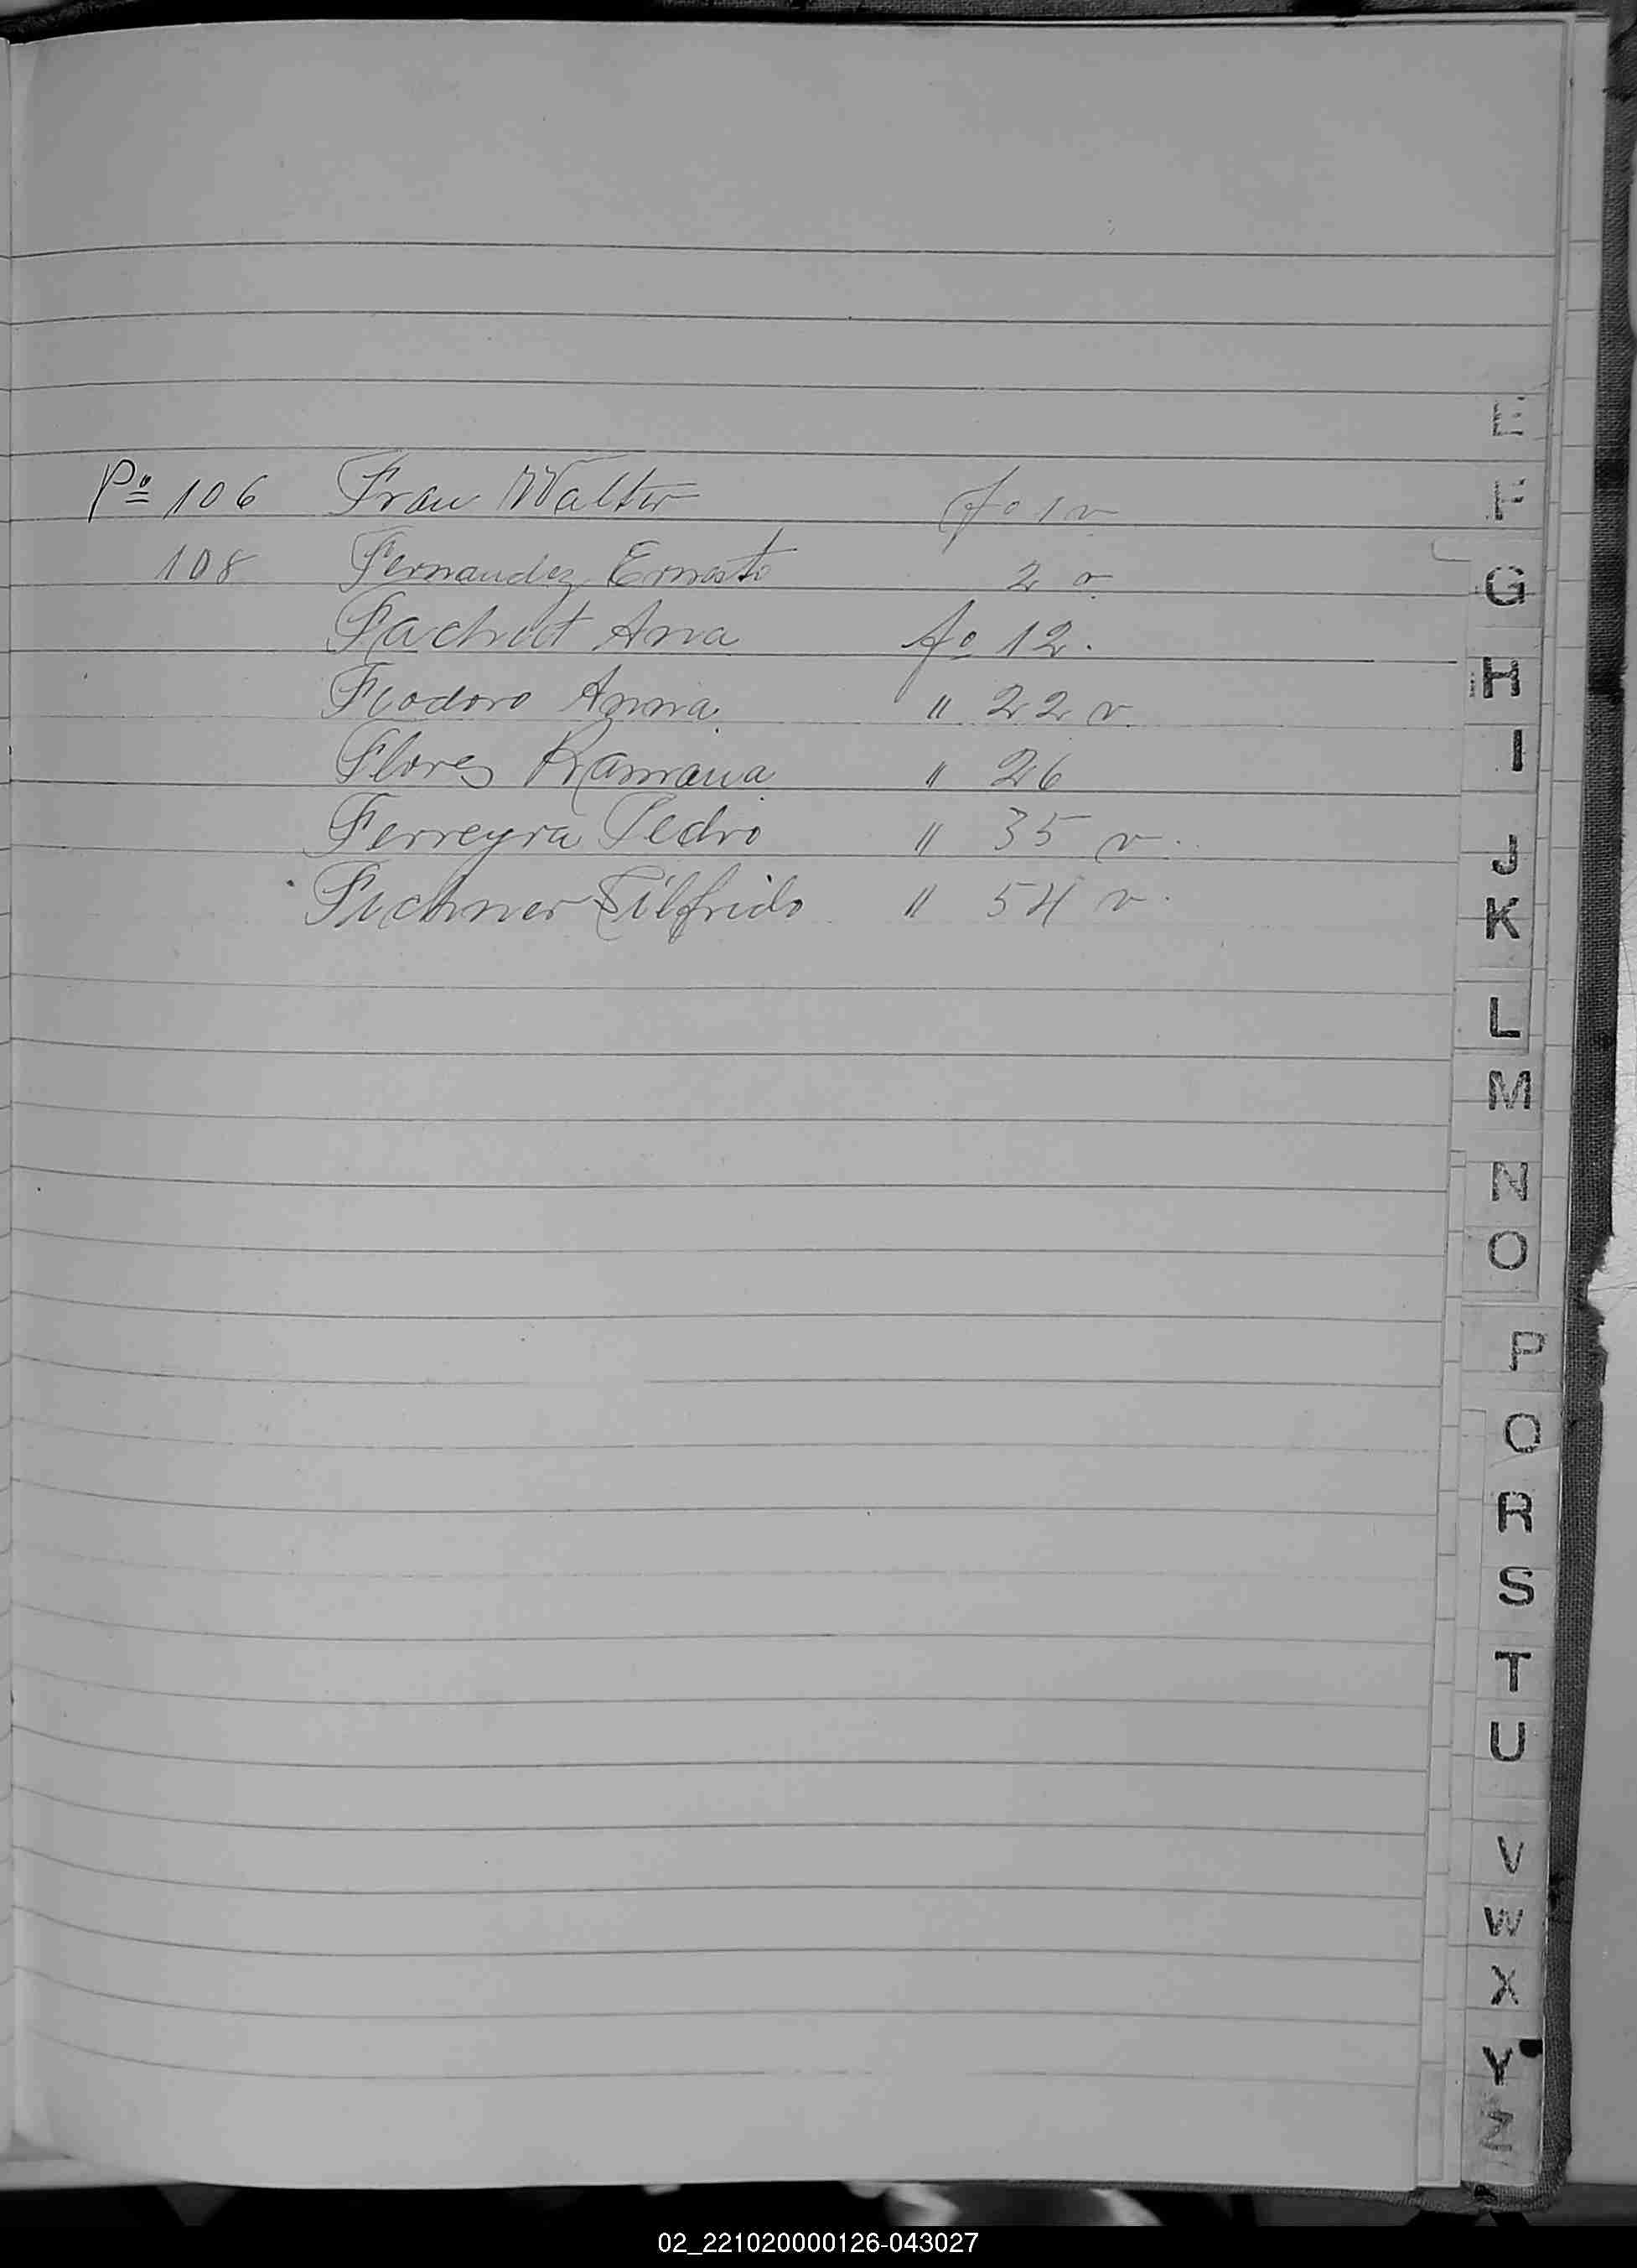 Pº 106 Frau Walter fº 1 v
108 Fernandez Ernesto 2 v
Fachat Ana fº 12.
Feodoro Anna " 22 v.
Flores Ramona " 26
Ferreyra Pedro " 35 v.
Fechner Silfrido " 54 v.
E
F
G
H
I
J
K
L
M
N
O
P
Q
R
S
T
U
V
W
X
Y
Z
02_221020000126-043027